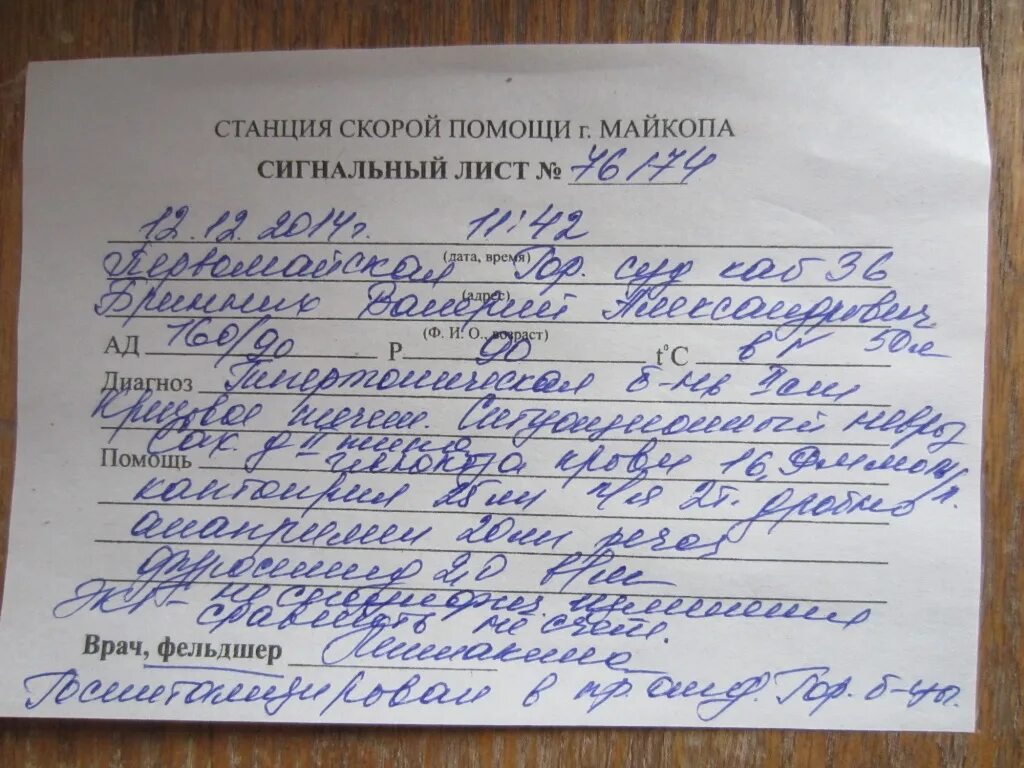 СТАНЦИЯ СКОРОЙ ПОМОЩИ г. МАЙКОПА
СИГНАЛЬНЫЙ ЛИСТ № 76174
12.12.2014г. 11:42
(дата, время)
Первомайская Гор. суд каб 36
(адрес)
Бринних Валерий Александрович
(Ф. И. О., возраст) 50л
АД 160/90 Р 90 t°С в N
Диагноз Гипертоническая б-нь II ст
Кризовое течен. Ситуационный невроз
Сах. д II типа
Помощь глюкоза крови 16,
каптоприл 25мг п/я 2т. дробно
анаприлин 20мг
фуросемид 2,0 в/м
ЭКГ - не специфич. изменения
сравнить не с чем.
Врач, фельдшер
Госпитализирован в пр. Гор. б-цы.